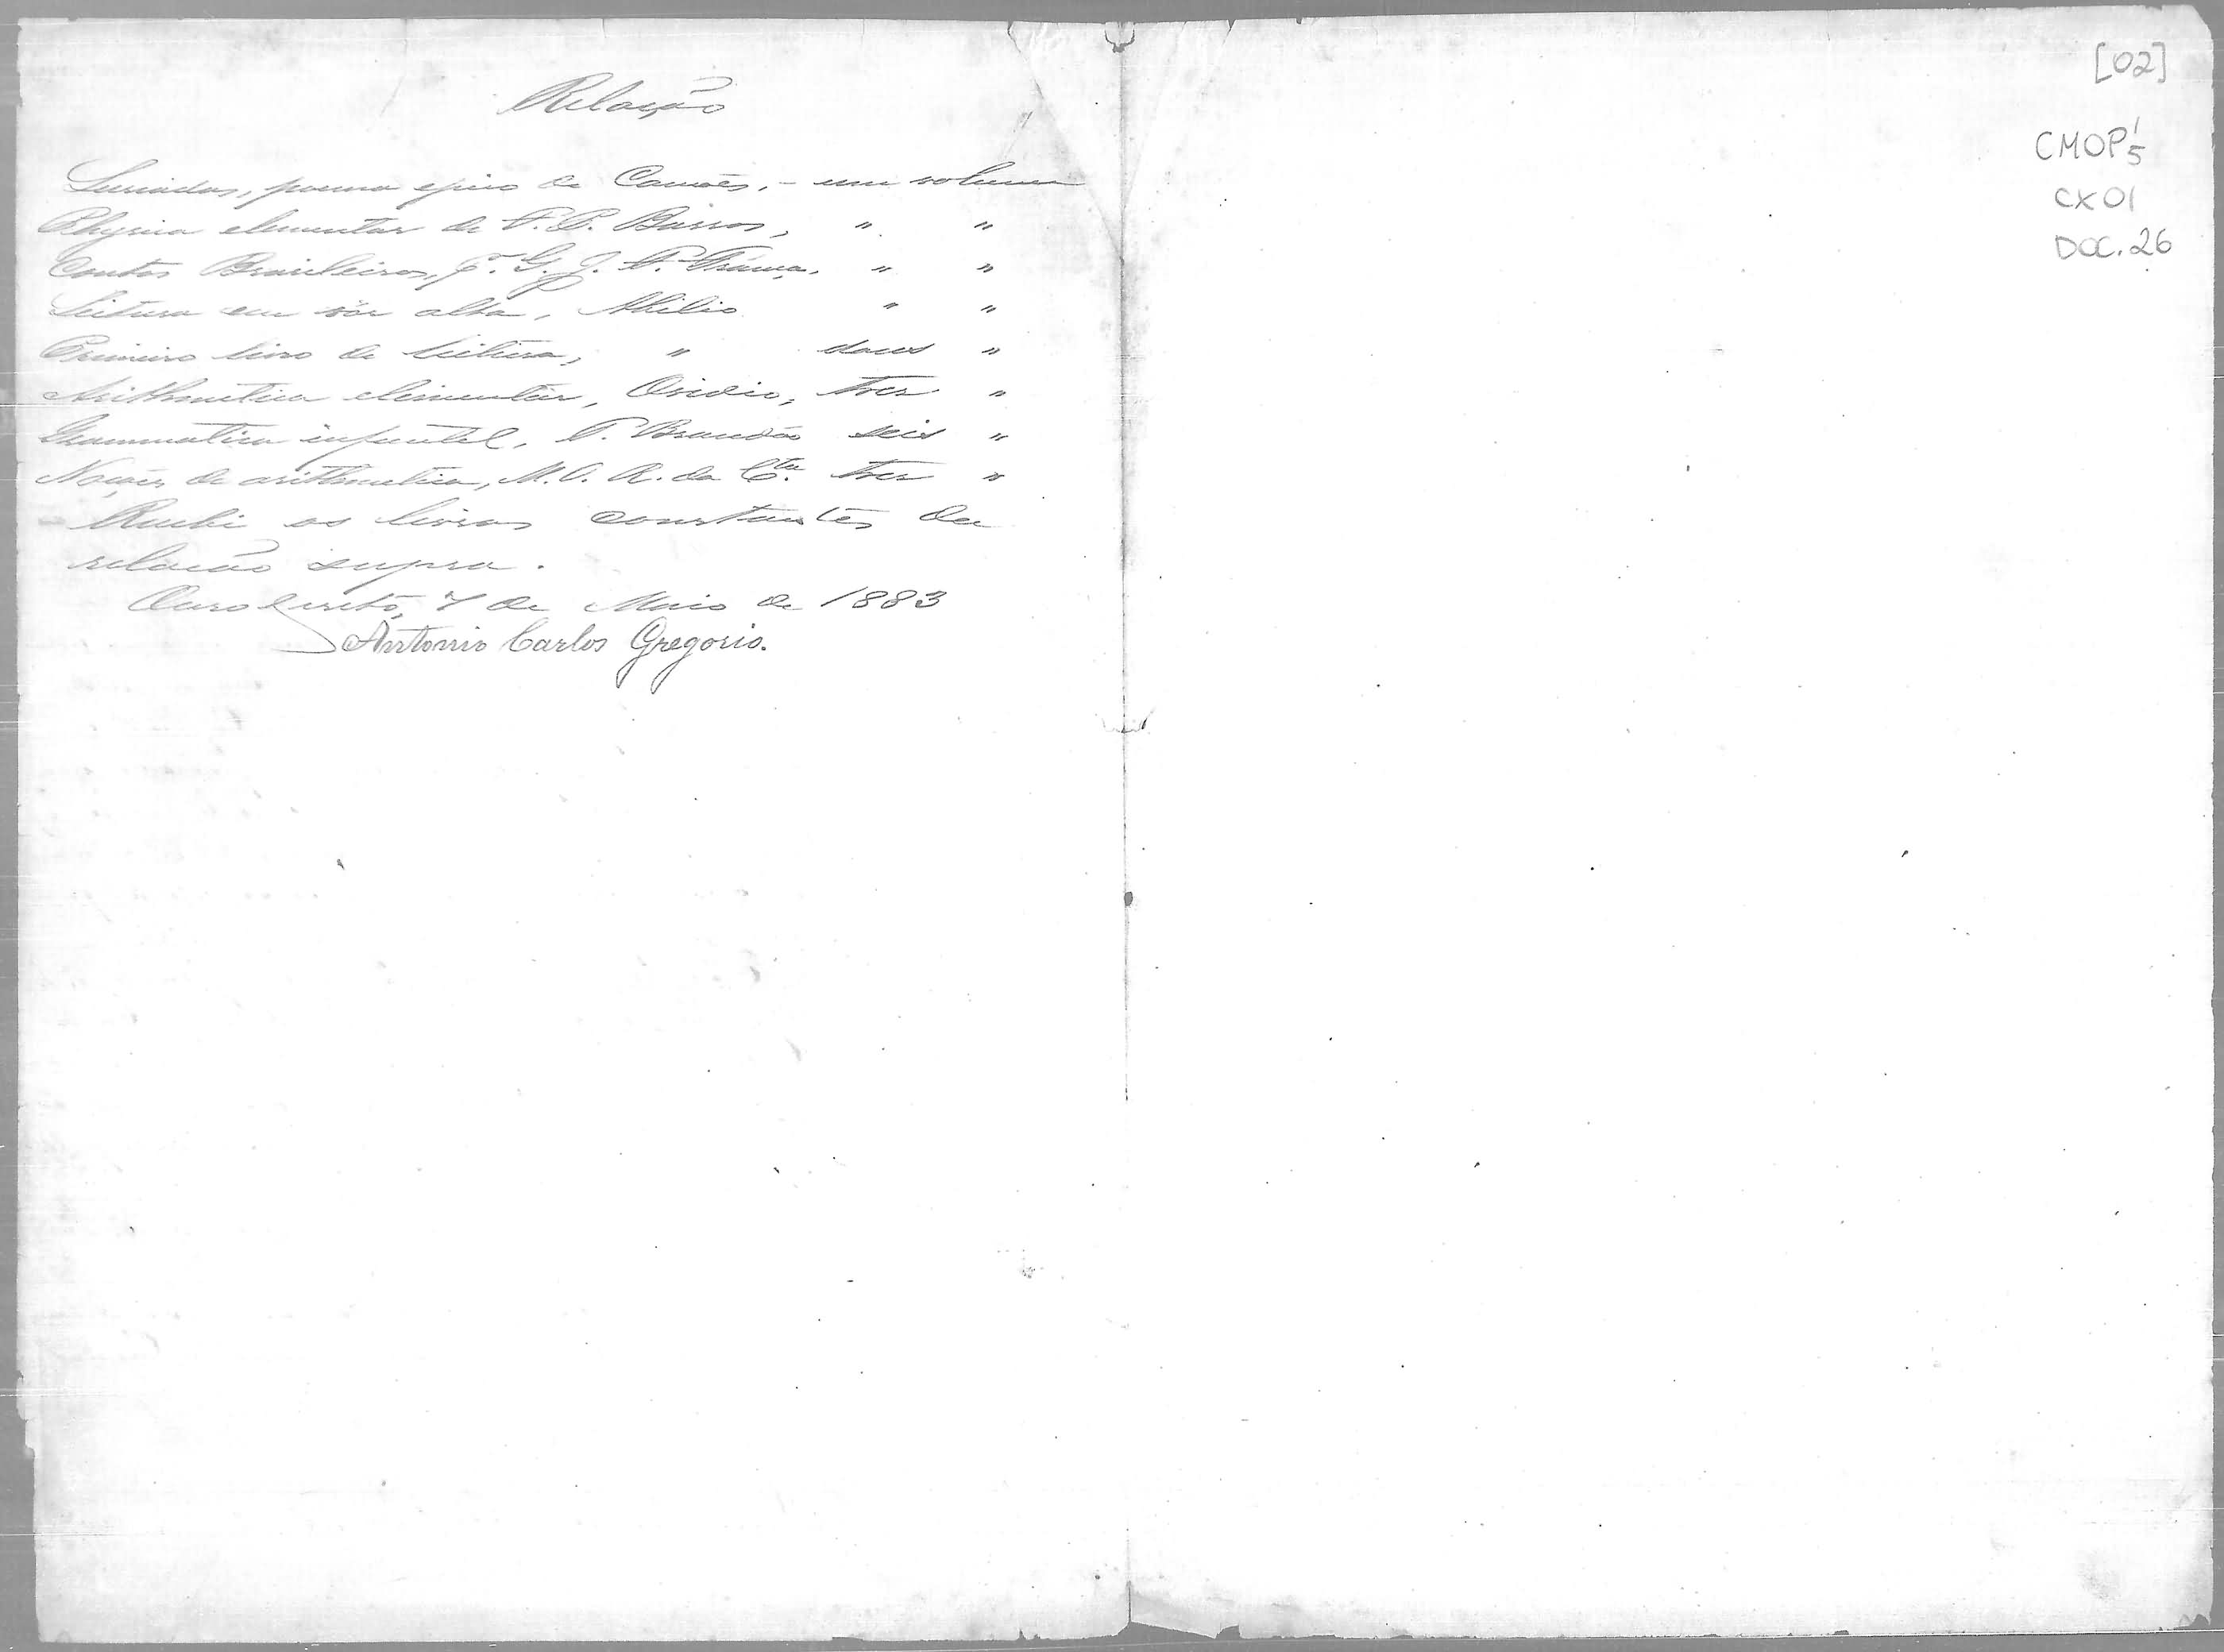 Relação
Lusiadas, poema epico de Camões, - um volume
Physica elementar de F. P. Barros, " "
Contos Brasileiros, F. G. J. F. França, " "
Leitura em vóz alta, Abilio " "
Primeiro livro de leitura, " dous "
Arithmetica elementar, Ovidio, tres "
Grammatica infantil, F. Brandão seis "
Noções de arithmetica, M. O. R. da C.ta tres "
Recebi os livros constantes da
relação supra.
Ouro Preto, 7 de Maio de 1883
Antonio Carlos Gregorio.
[02]
CMOP 1/5
CX 01
DOC. 26